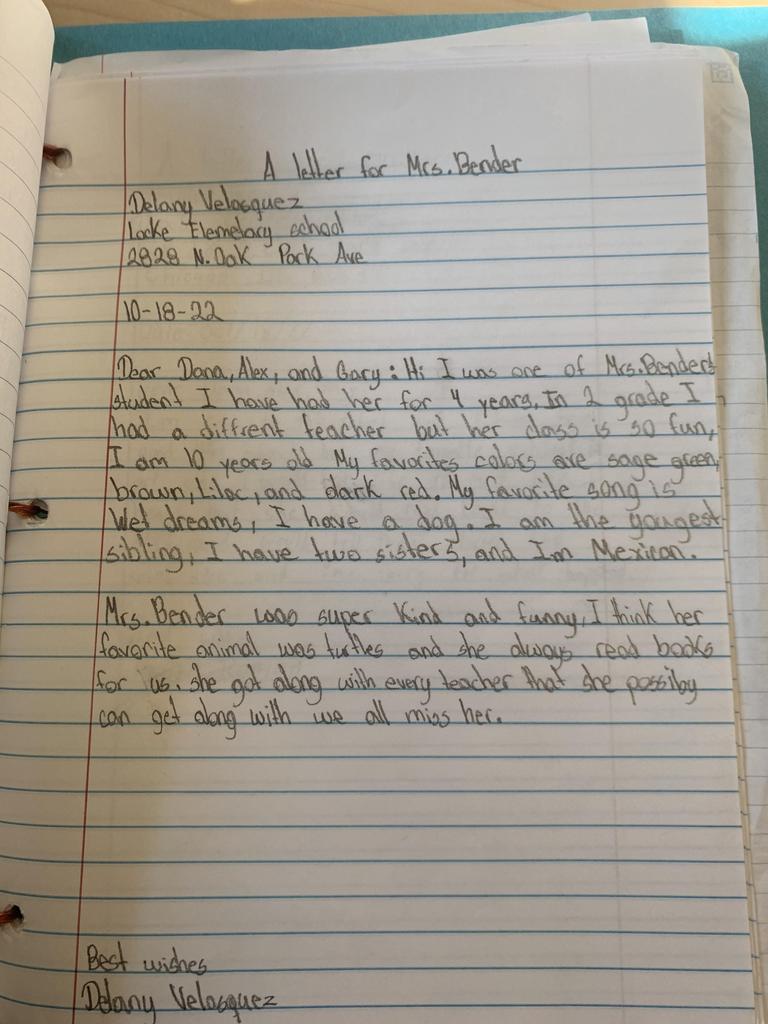 A letter for Mrs. Bender
Delany Velasquez
Locke Elemetary school
2828 N. Oak Park Ave
10-18-22
Dear Dana, Alex, and Gary: Hi I was one of Mrs. Benders
student I have had her for 4 years. In 2 grade I
had a diffrent teacher but her class is so fun,
I am 10 years old My favorites colors are sage green,
brown, Lilac, and dark red. My favorite song is
Wet dreams, I have a dog. I am the yougest
sibling, I have two sisters, and Im Mexican.
Mrs. Bender was super kind and funny, I think her
favorite animal was turtles and she always read books
for us. she got along with every teacher that she possiby
can get along with we all miss her.
Best wishes
Delany Velasquez